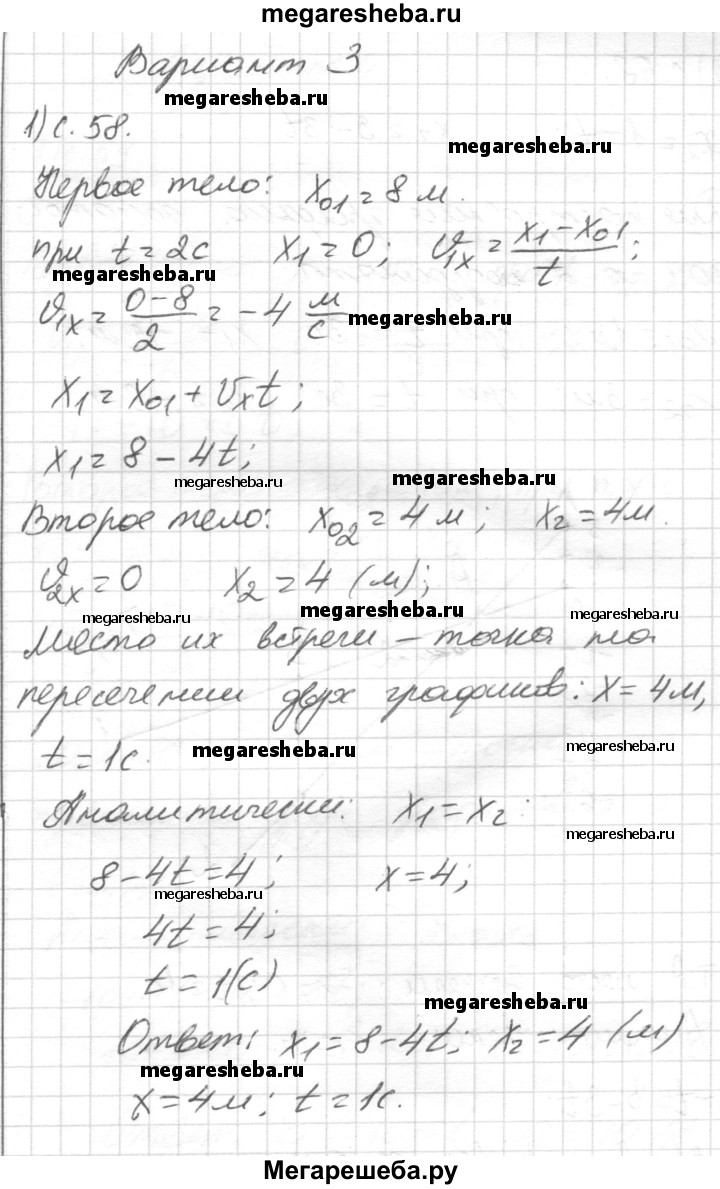 megaresheba.ru
Вариант 3
megaresheba.ru
1) с. 58.
megaresheba.ru
Первое тело: x₀₁ = 8 м.
при t = 2с x₁ = 0; υ₁ₓ = (x₁ - x₀₁)/t;
megaresheba.ru
υ₁ₓ = (0-8)/2 = -4 м/с
megaresheba.ru
x₁ = x₀₁ + υₓt;
x₁ = 8 - 4t;
megaresheba.ru
megaresheba.ru
Второе тело: x₀₂ = 4 м; x₂ = 4м.
υ₂ₓ = 0 x₂ = 4 (м);
megaresheba.ru
megaresheba.ru
megaresheba.ru
Место их встречи – точка на
пересечении двух графиков: x = 4м,
t = 1с.
megaresheba.ru
megaresheba.ru
Аналитически: x₁ = x₂
megaresheba.ru
8 - 4t = 4; x = 4;
megaresheba.ru
4t = 4;
t = 1(с)
megaresheba.ru
Ответ: x₁ = 8 - 4t; x₂ = 4 (м)
megaresheba.ru
x = 4м; t = 1с.
Мегарешеба.ру